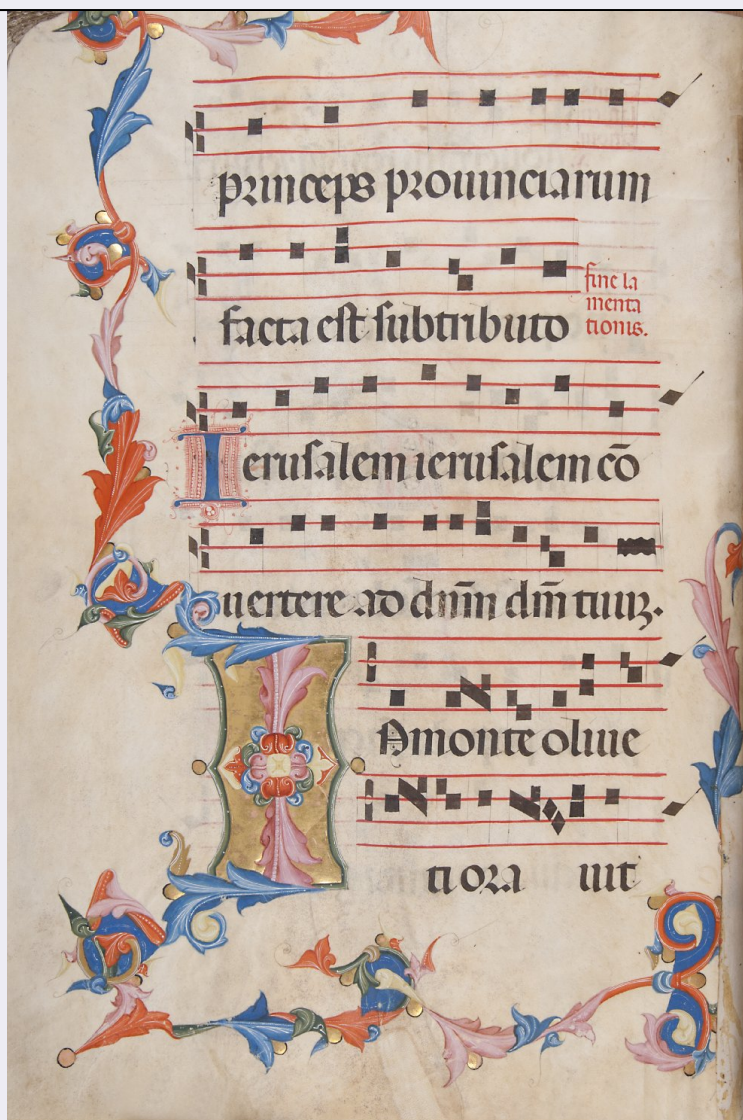 princeps prouinciarum
facta est subtributo
fine la
menta
tionis.
Ierusalem ierusalem cō
uertere ad dn̄m dm̄ tuuꝫ.
IN monte oliue
ti ora uit